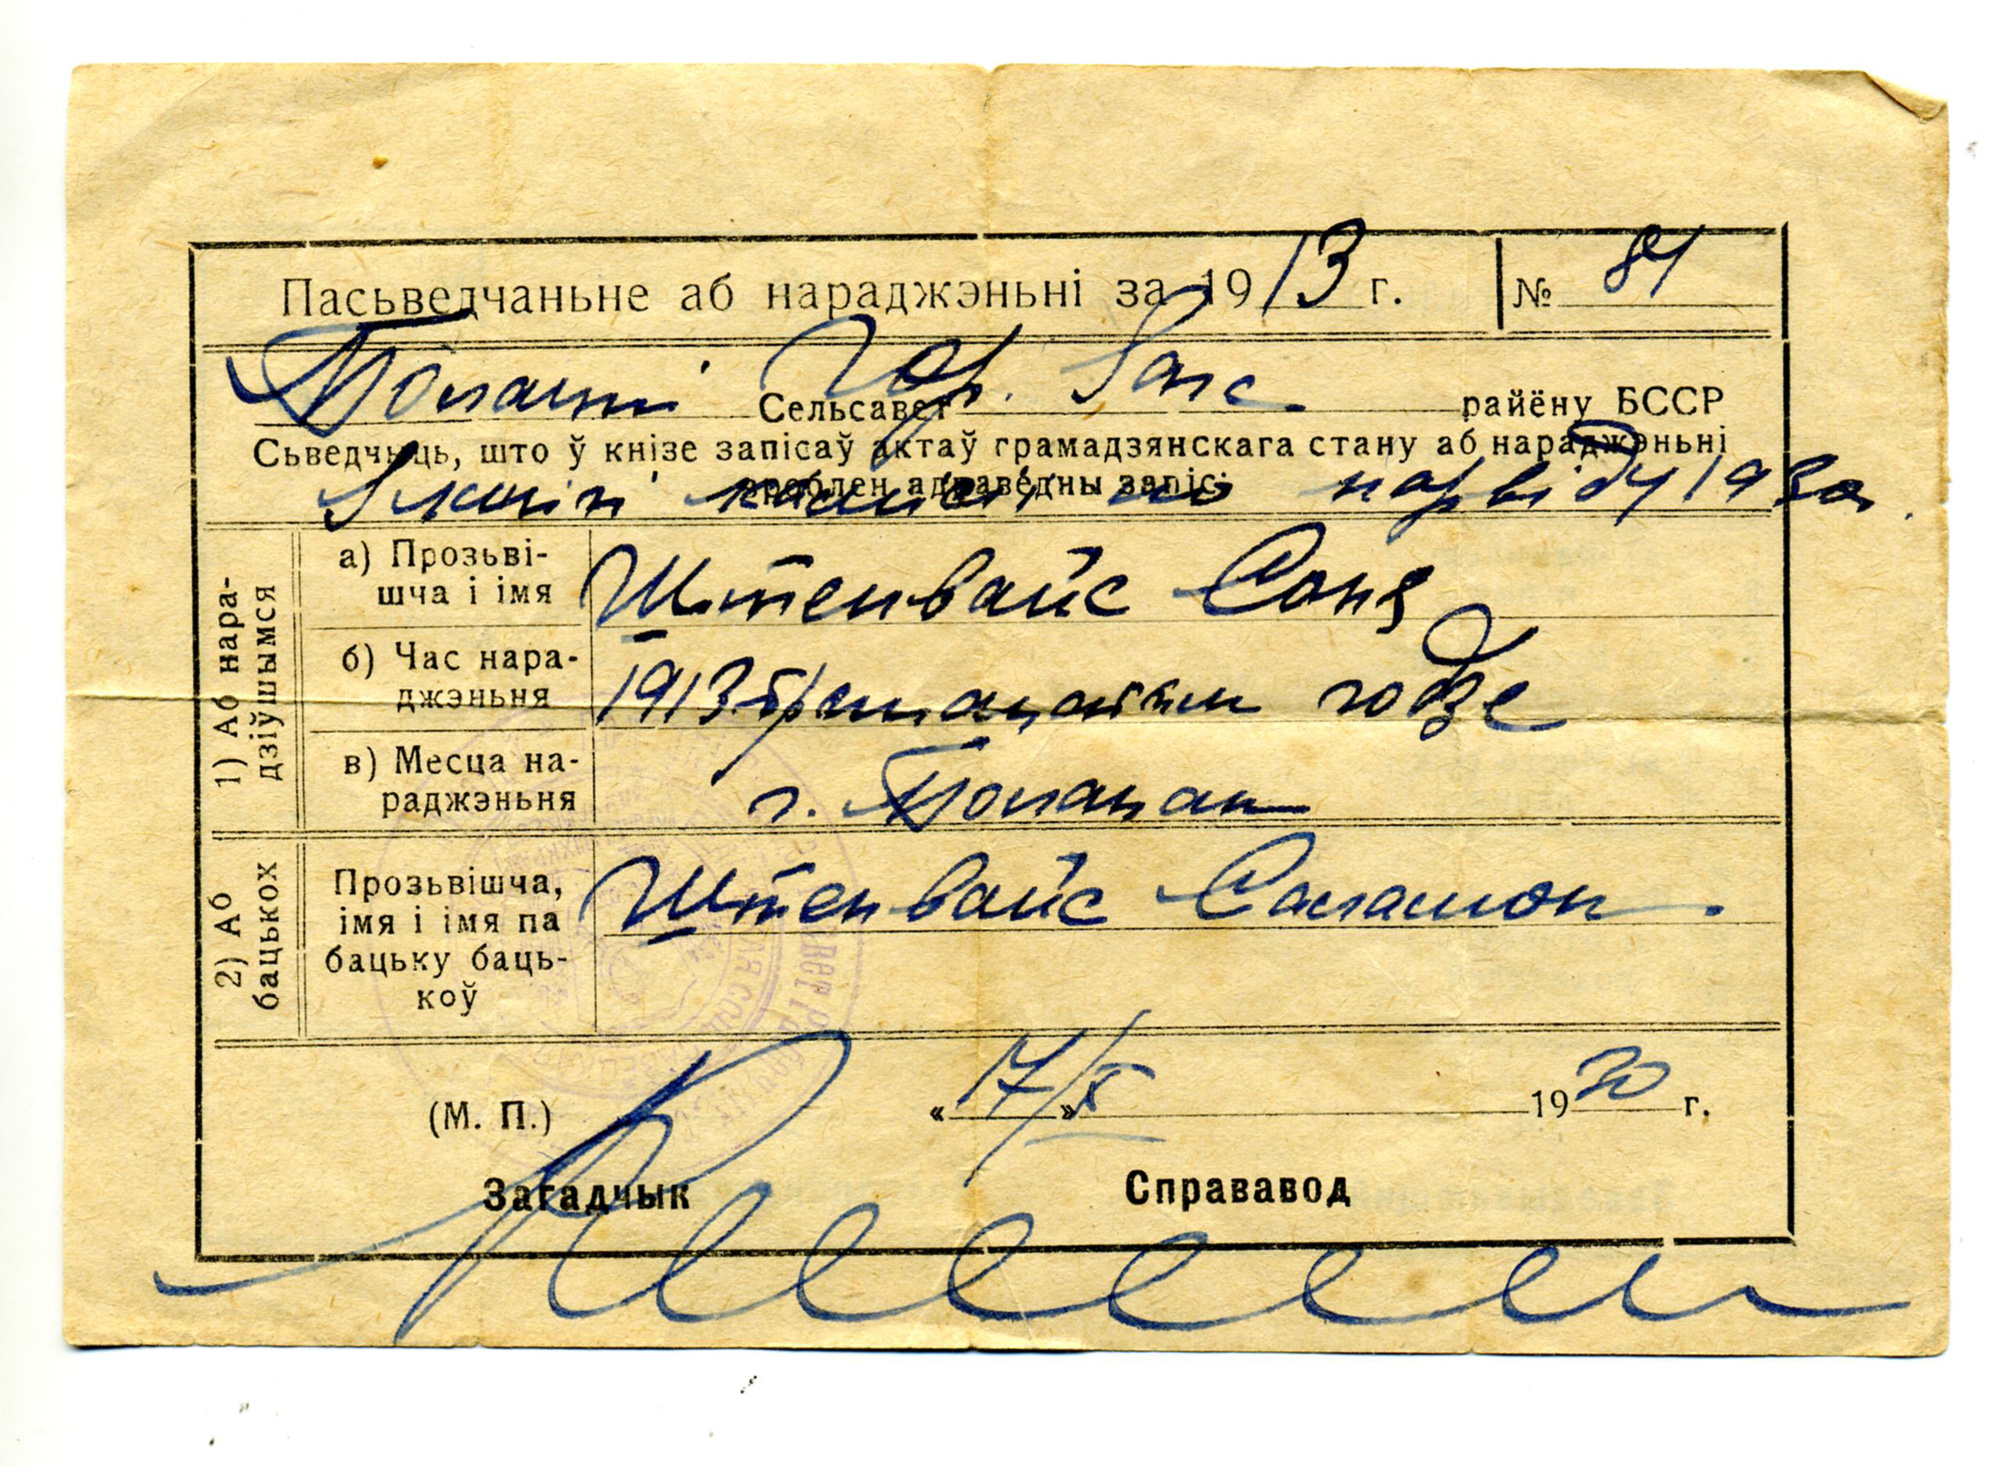 Пасьведчаньне аб нараджэньні за 1913 г. № 81
Полацкі Сельсавет Загс райёну БССР
Сьведчыць, што ў кнізе запісаў актаў грамадзянскага стану аб нараджэньні
зроблен адпаведны запіс:
1) Аб нара-
дзіўшымся
а) Прозьві-
шча і імя
Штенвайс Соня
б) Час нара-
джэньня
1913 трынаццатым годзе
в) Месца на-
раджэньня
г. Полацак
2) Аб
бацькох
Прозьвішча,
імя і імя па
бацьку баць-
коў
Штенвайс Саламон.
(М. П.) «17» X 1930 г.
Загадчык Справавод